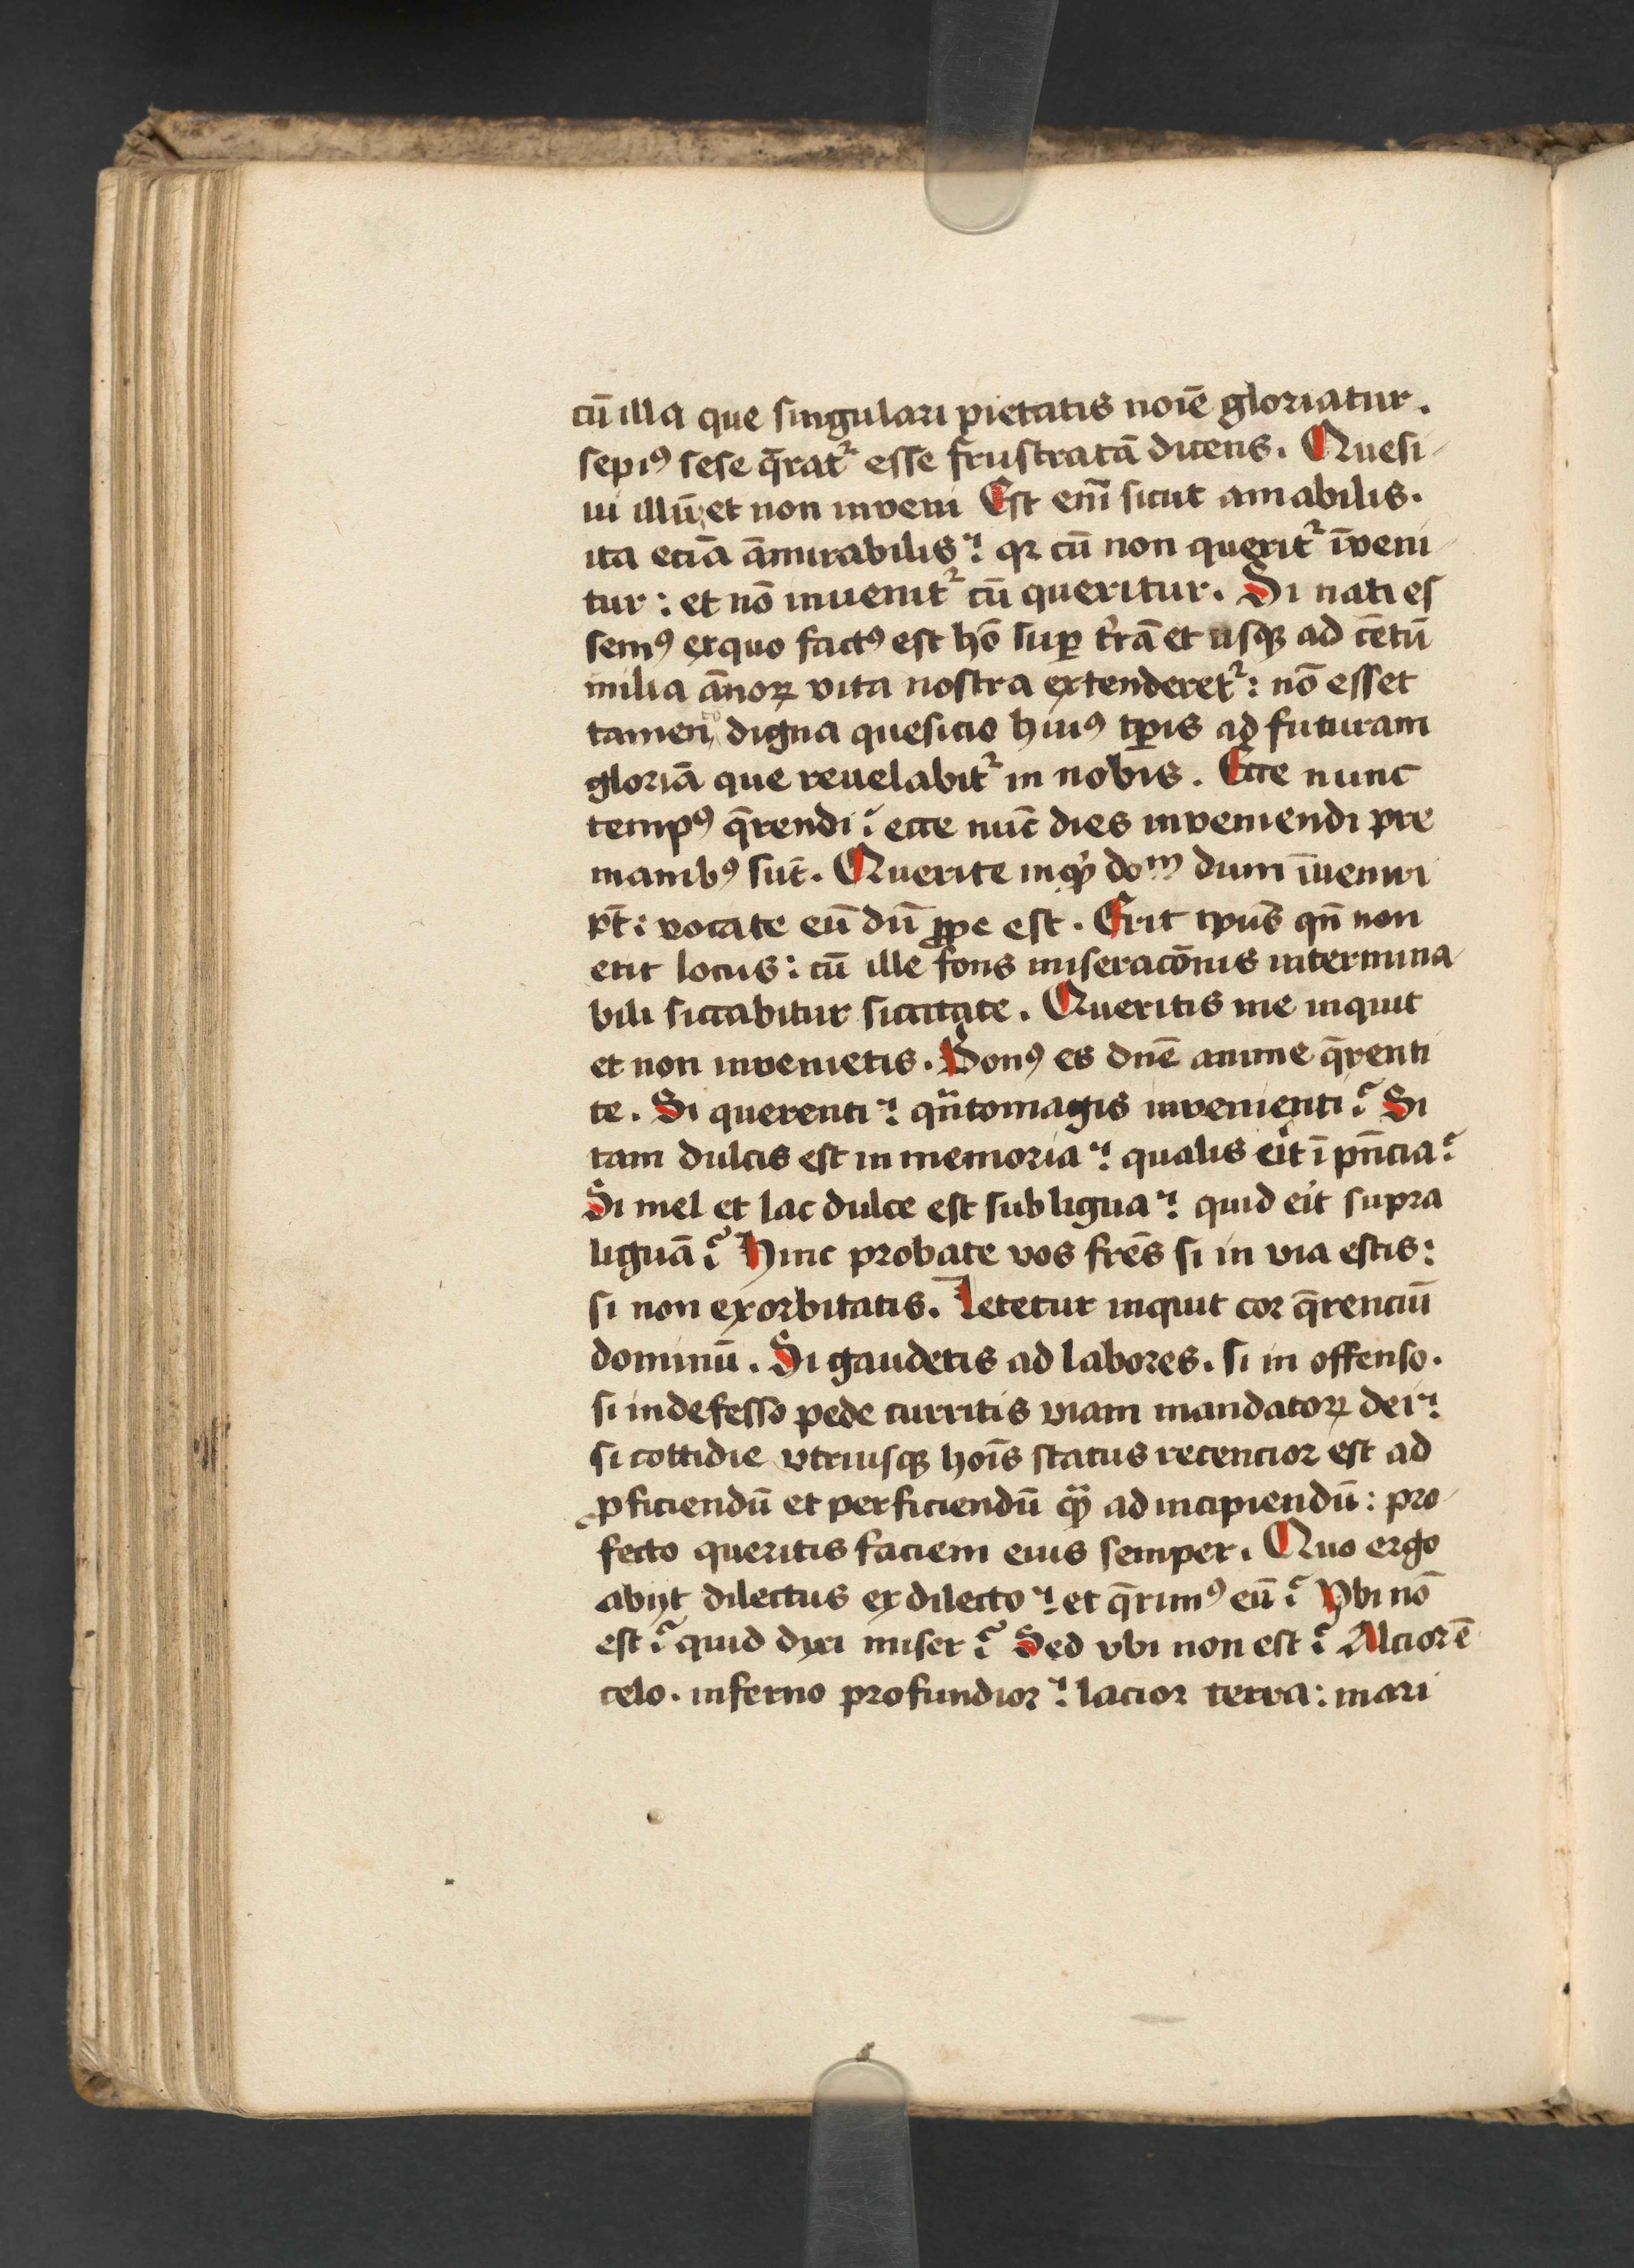 cū illa que singulari pietatis noīe gloriatur.
sepiꝰ sese q̄ratᷣ esse frustratā dicens. Quesi-
ui illū, et non inveni Est enī sicut amabilis.
ita eciā āmirabilis: qꝛ cū non queritᷣ īveni-
tur: et nō inuenitᷣ cū queritur. Si nati es
semꝰ exquo factꝰ est hō suꝑ t̓rā et usqꝫ ad cētū
milia ānoꝝ vita nostra extenderetᷣ: nō esset
tamen digna quesicio huiꝰ tꝑis ad futuram
gloriā que reuelabitᷣ in nobis. Ecce nunc
tempꝰ q̄rendi: ecce nūc dies inveniendi pre
manibꝰ sūt. Querite inq̓ doᵐ dum īueniri
pt̄: vocate eū dū ꝓpe est. Erit tpus̄ qn̄ non
erit locus: cū ille fons miseracōnis intermina-
bili siccabitur siccitate. Queritis me inquit
et non invenietis. Bonꝰ es dnē anime q̄renti
te. Si querenti: qn̄tomagis invenienti? Si
tam dulcis est in memoria: qualis eit̓ ī pn̄cia?
Si mel et lac dulce est sub ligua: quid eit̓ supra
liguā? Hinc probate vos fres̄ si in via estis:
si non exorbitatis. Letetur inquit cor q̄renciū
dominū. Si gaudetis ad labores. si in offenso.
si indefesso pede curritis viam mandatoꝝ dei:
si cottidie vtriusqꝫ hoīs status recencior est ad
ꝓficiendū et perficiendū qᷓ ad incipiendū: pro-
fecto queritis faciem eius semper. Quo ergo
abijt dilectus ex dilecto: et q̄rimꝰ eū? Vbi nō
est? quid dyxi miser? Sed vbi non est? Alcior ē
celo. inferno profundior: lacior terra: mari